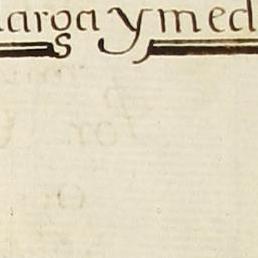 larga y med